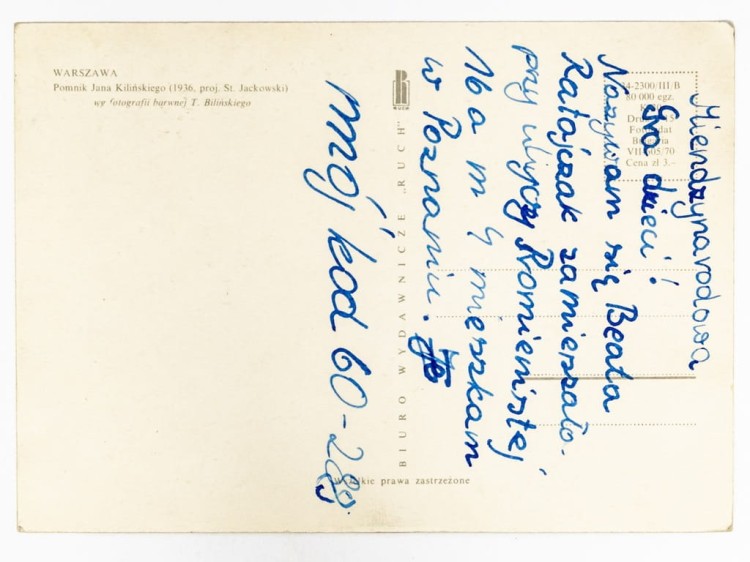 WARSZAWA
Pomnik Jana Kilińskiego (1936, proj. St. Jackowski)
wg fotografii barwnej T. Bilińskiego
BIURO WYDAWNICZE „RUCH”
RUCH
-2300/III/B
80 000 egz.
VII-
05/70
Cena zł 3.–
prawa zastrzeżone
Miendzynarodowa
Gra dzieci!
Nazywam się Beata
Ratajczak zamieszało-
przy ulicy Promienistej
16 a m 4 mieszkam
w Poznaniu.
mój kod 60-289.